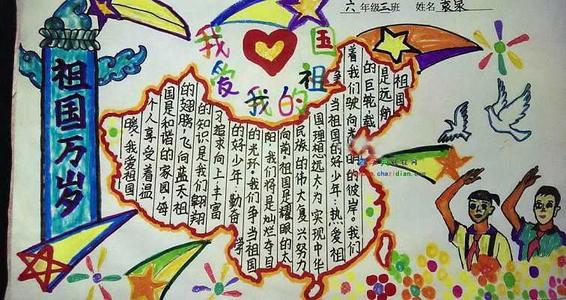 六年级三班 姓名
我爱我的祖国
祖国万岁
祖国
是远航
的巨轮，载
着我们驶向光明的彼岸。我们
当祖国的好少年：热爱祖
国理想远大为实现中华
民族的伟大复兴努力
向前。祖国是耀眼的太
阳，我们将是灿烂夺目
的光环。我们争当祖国
的好少年：勤奋
习追求向上丰富
的知识是我们翱翔
的翅膀，飞向蓝天。祖
国是和谐的家园，每
个人享受着温
暖。我爱祖国
chazidian.com